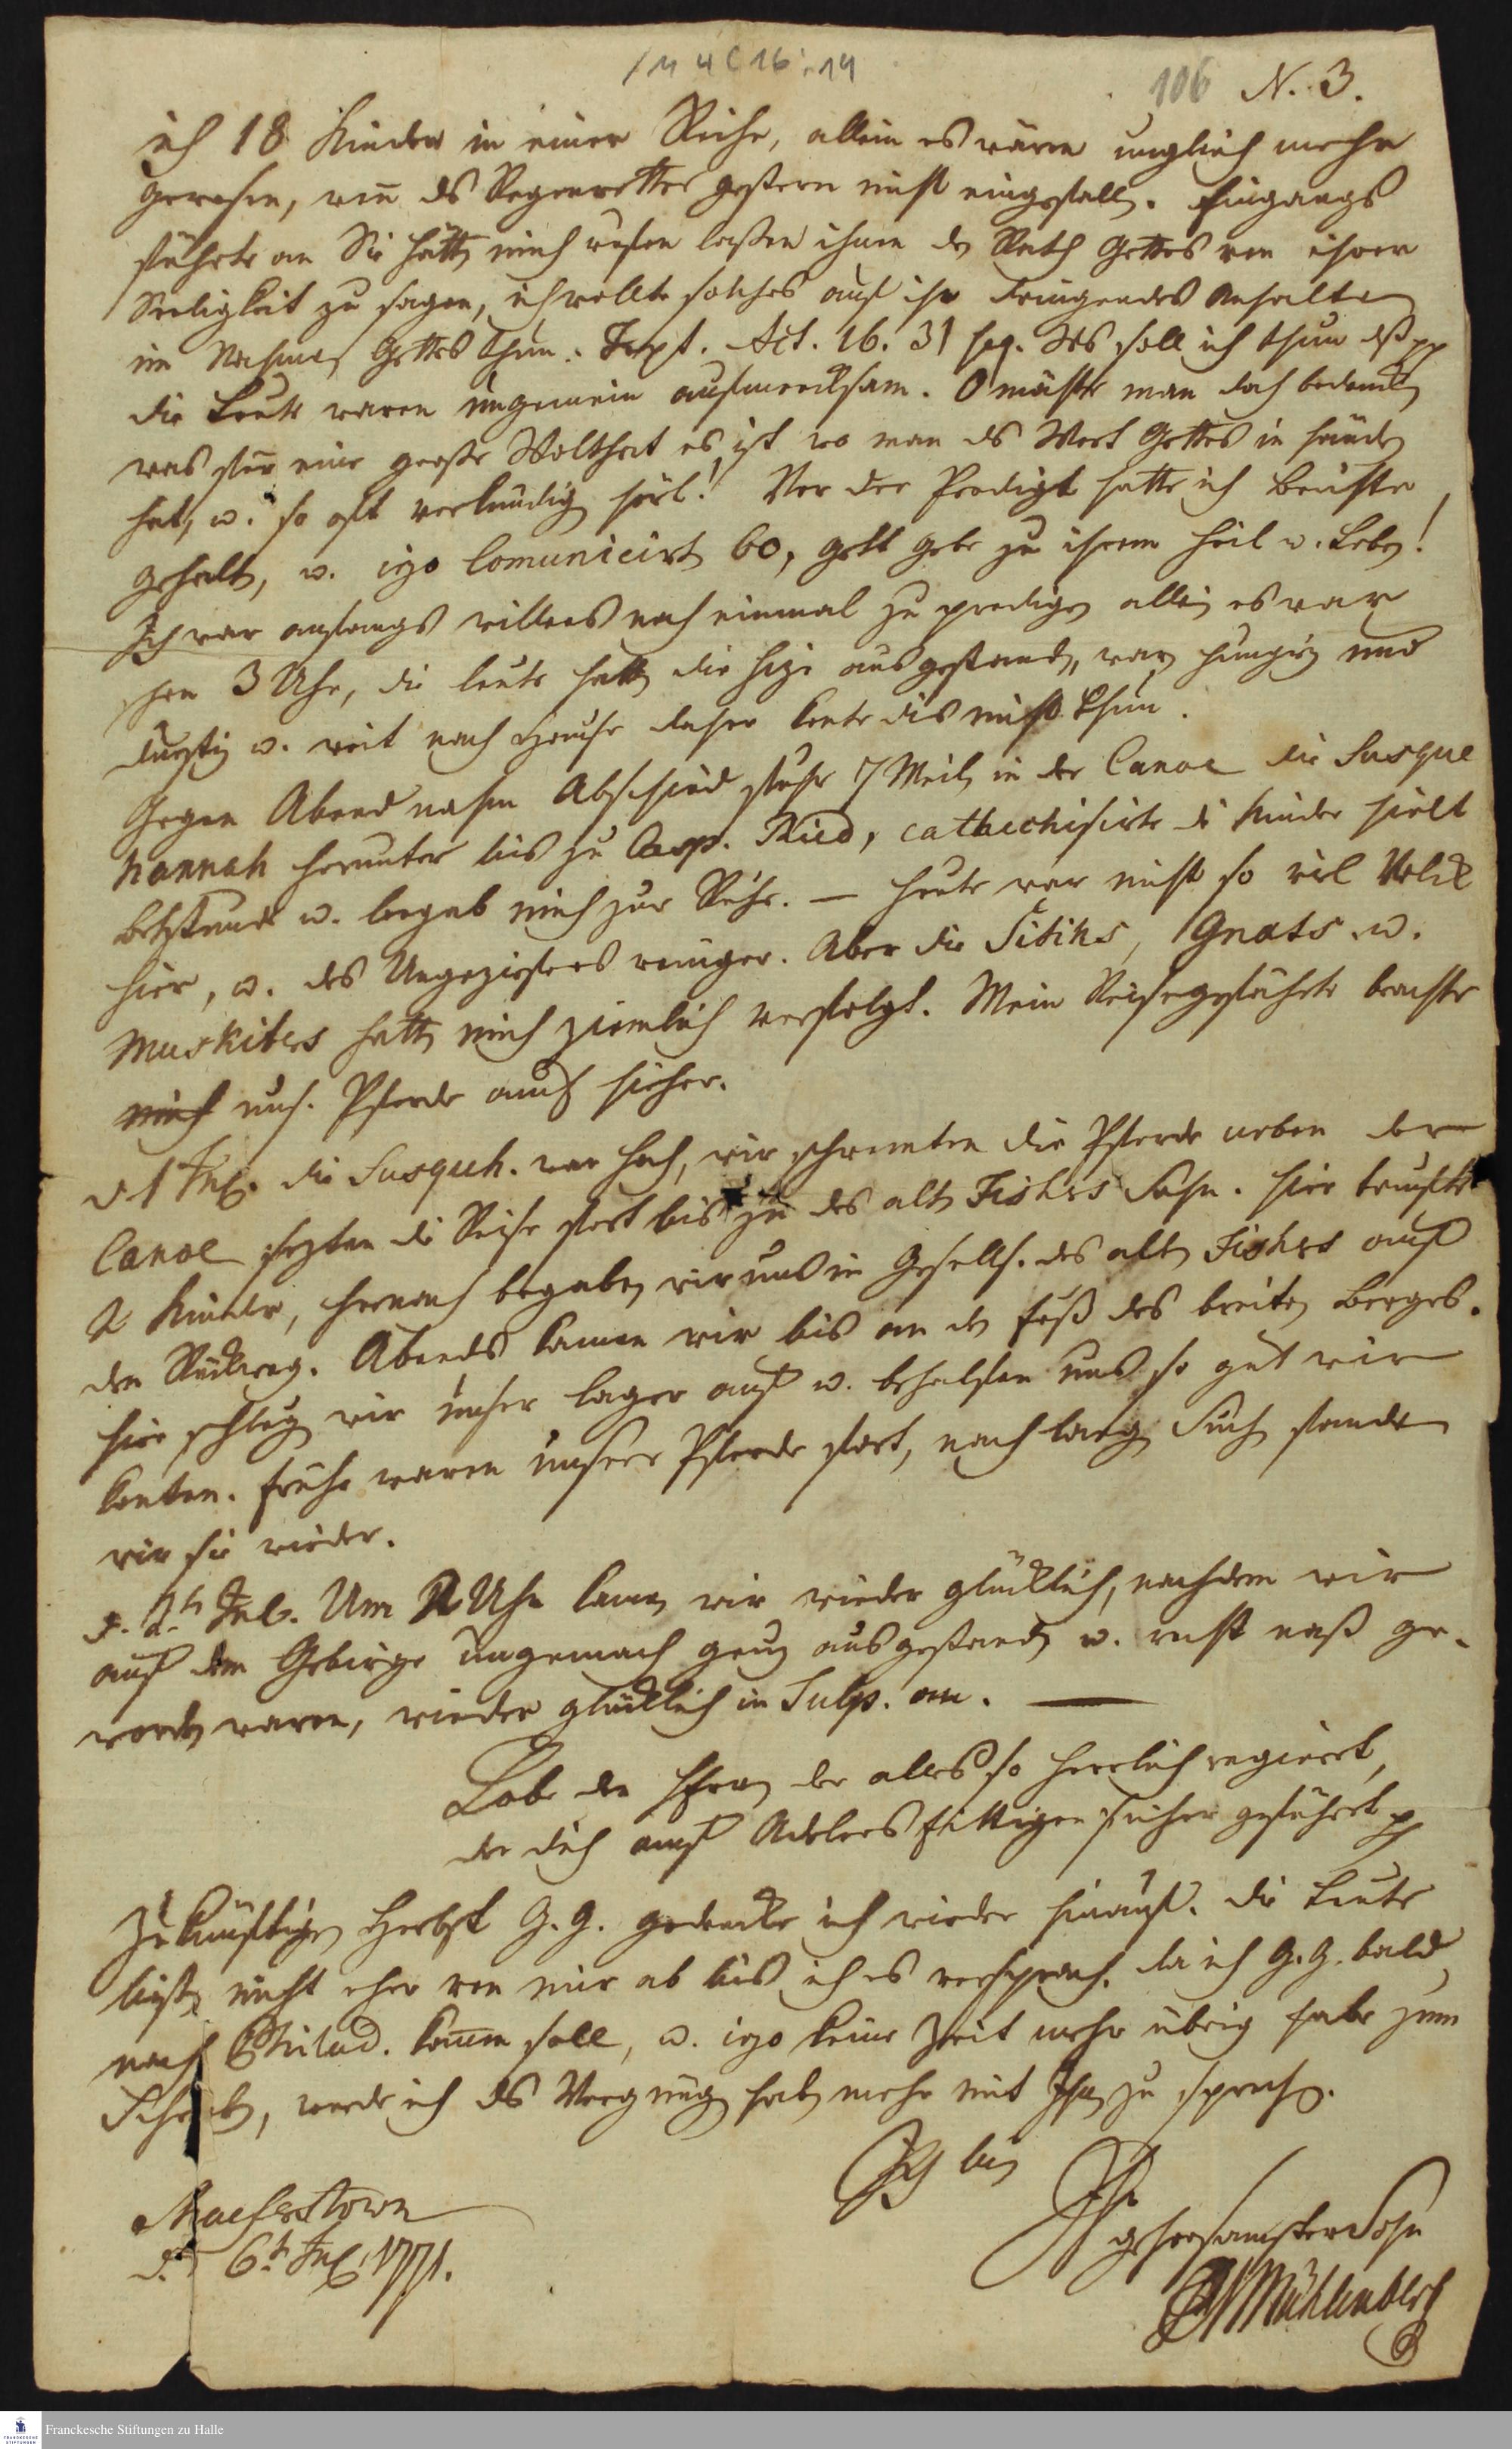 /M 4 C 16 : 14
106 N. 3.
ich 18 Kinder in einer Reihe, allein es wären ungleich mehr
gewesen, weñ ds Regenwetter gestern nicht eingefall. Eingangs
führte an Sie hätt mich rufen lassen ihnen dn Rath Gottes von ihrer
Seeligkeit zu sagen, ich wollte solches auf ihr dringendes Anhalten
im Nahmen Gottes thun. Text. Act. 16. 31 seq. Was soll ich thun dß pp
die Leute waren ungemein aufmercksam. O möchte man doch bedencken
was für eine große Wolthat es ist wo man ds Wort Gottes in Händen
hat, u. so oft verkündig hört! Vor der Predigt hatte ich Beichte
gehalten, u. izo Comunicirt 60, Gott gebe zu ihrem Heil u. Leben!
Ich war anfangs willens noch einmal zu predigen allein es war
schon 3 Uhr, die Leute hatt die Hize ausgestanden, waren hungrig und
durstig u. weit nach Hause daher konte dis nicht thun.
Gegen Abend nahm Abschied fuhr 7 Meilen in der Canoe die Susque
hannah herunter bis zu Casp. Ried, cathechisirte di Kinder hielt
Betstunde u. begab mich zur Ruhe. — Heute war nicht so viel Volck
hier, u. des Ungeziefers weniger. Aber die Titiks, Gnats u.
Muskitos hatt mich ziemlich verfolgt. Mein Reisegefährte brachte
mich uns. Pferde auch hieher.
d 1 Jul. die Susqueh. war hoch, wir schwemten die Pferde neben der
Canoe sezten di Reise fort bis zu des alten Fishers Sohn. Hier taufte
2 Kinder, hernach begaben wir uns in Gesells. des alten Fishers auf
den Rückweg. Abends kamen wir bis an dn Fuß des breiten Berges.
Hier schlugen wir unser Lager auf u. behalfen uns so gut wir
konten. Frühe waren unsere Pferde fort, nach lang Suchen fanden
wir sie wieder.
d. 2.th Jul. Um 2 Uhr kamen wir wieder glücklich, nachdem wir
auf dem Gebirge ungemach genug ausgestanden u. recht naß ge-
worden waren, wieder glücklich in Tulp. an. —
Lobe den Herren der alles so herrlich regieret,
der dich auf Adelers fittigen sicher geführet pp
Zukünftigen Herbst G. G. gedencke ich wieder hinauf. Die Leute
ließen nicht eher von mir ab bis ich es versprach. da ich G. G. bald
nach Philad. kommen soll, u. izo keine Zeit mehr übrig habe zum
Schreiben, werde ich ds Vergnügen haben mehr mit Ihnen zu sprechen.
Ich bin
Ihr
gehorsamster Sohn
Mühlenberg
Maefestown
d. 6th Jul. 1771.
Franckesche Stiftungen zu Halle